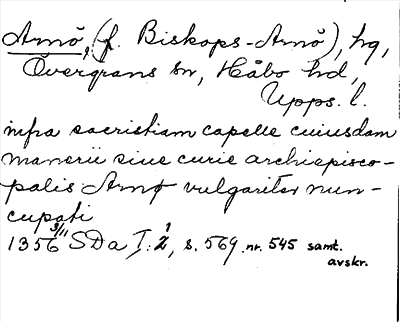 Arnö, (f. Biskops-Arnö), hg,
Övergrans sn, Håbo hd,
Upps. l.
infra sacristiam capelle cuiusdam
manerii siue curie archiepisco-
palis Arnø vulgariter nun-
cupati
1356 3/11 SDa I:2, s. 569 nr. 545 samt.
avskr.